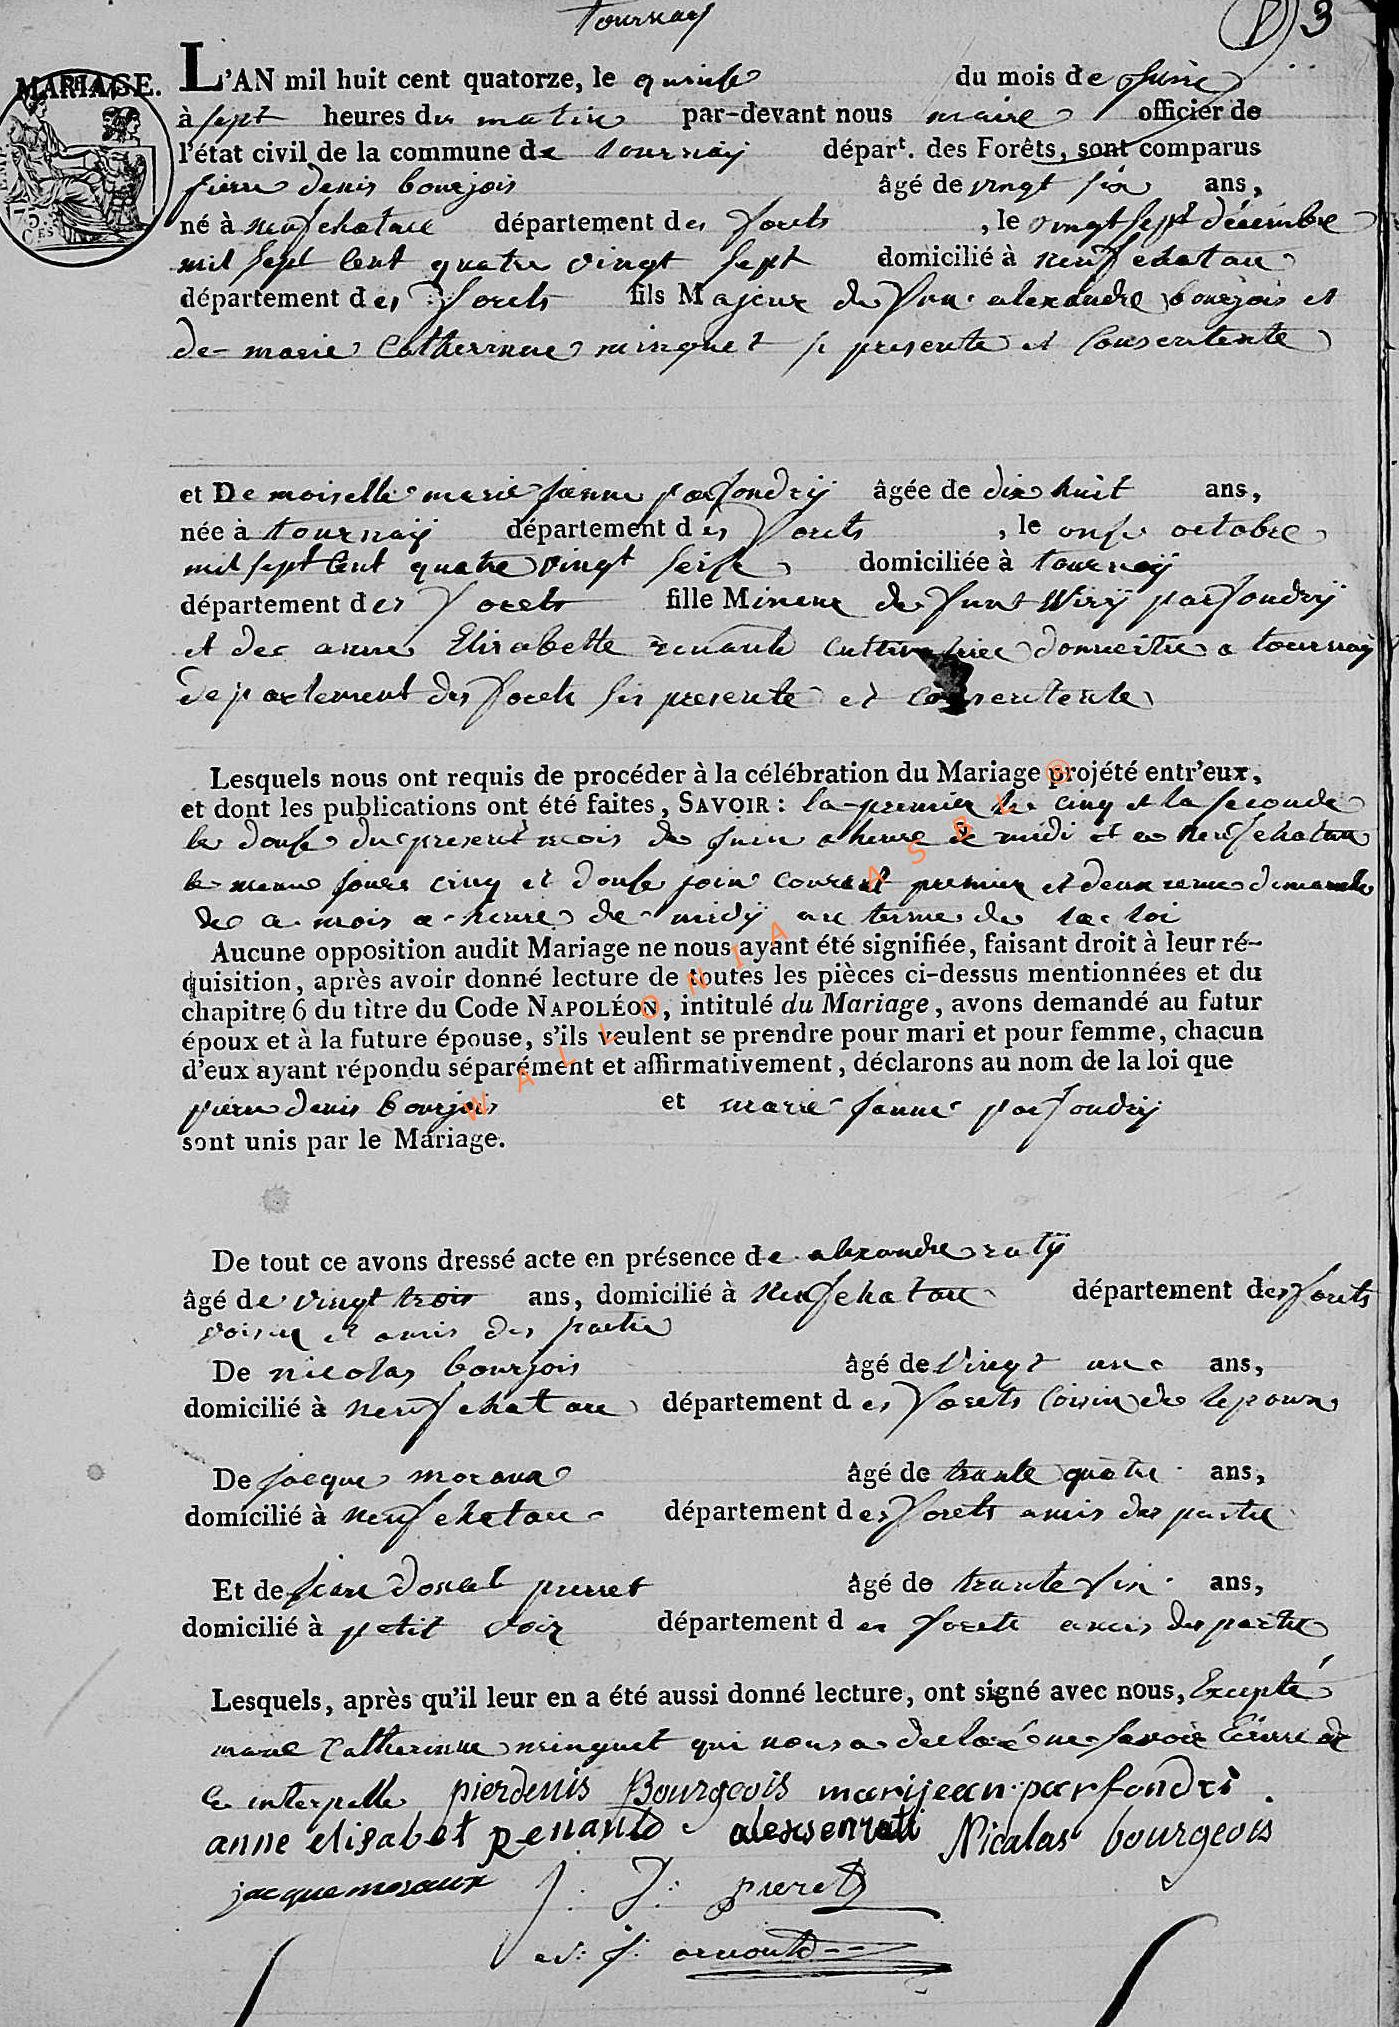 tournay
3
MARIAGE. L'AN mil huit cent quatorze, le quinse du mois de Juin
à sept heures du matin par-devant nous maire officier de
l'état civil de la commune de tournay départ. des Forêts, sont comparus
pierre denis bourjois âgé de vingt six ans,
né à neufchatau département des forets, le vingt sept décimbre
mil sept cent quatre vingt sept domicilié à neufchatau
département des forets fils Majeur de alexandre bourjois et
de marie Catherinne minguet presente et Consentente
et Demoiselle marie Janne parfondrÿ âgée de dix huit ans,
née à tournaÿ département des forets, le onse octobre
mil sept cent quatre vingt seise domiciliée à tournaÿ
département des forets fille Mineur de funt Wirÿ parfondrÿ
et de anne Elisabette renauld domicilie a tournaÿ
departement des forets presente et consentente
Lesquels nous ont requis de procéder à la célébration du Mariage projété entr'eux,
et dont les publications ont été faites, SAVOIR : la premier le cinq et la seconde
le douse du present mois de juin a heure de midi et a neufchatau
le meme jours cinq et douse join courant premier et deuxieme dimanche
de ce mois a heure de midÿ au terme de la loi
Aucune opposition audit Mariage ne nous ayant été signifiée, faisant droit à leur ré-
quisition, après avoir donné lecture de toutes les pièces ci-dessus mentionnées et du
chapitre 6 du titre du Code NAPOLÉON, intitulé du Mariage, avons demandé au futur
époux et à la future épouse, s'ils veulent se prendre pour mari et pour femme, chacun
d'eux ayant répondu séparément et affirmativement, déclarons au nom de la loi que
pierre denis bourjois et marie janne parfondrÿ
sont unis par le Mariage.
WALLONIA ASBL ®
De tout ce avons dressé acte en présence de alexandre ratÿ
âgé de vingt trois ans, domicilié à Neufchatau département des forets
voisin et amis des partie
De nicolas bourjois âgé de vingt un ans,
domicilié à neufchatau département des forets Coisin de lepoux
De jacque moraux âgé de trante quatre ans,
domicilié à neufchatau département des forets amis des partie
Et de jean donat pierret âgé de trante six ans,
domicilié à petit voir département des forets amis des partie
Lesquels, après qu'il leur en a été aussi donné lecture, ont signé avec nous, Excepté
marie Catherinne minguet qui nous a declaré ne savoir Ecrire de
ce interpelle pierdenis Bourgeois marijean parfondri
anne elisabet Renauld alexsenrati Nicalas bourgeois
jacque moraux J: D: pieret
arnould